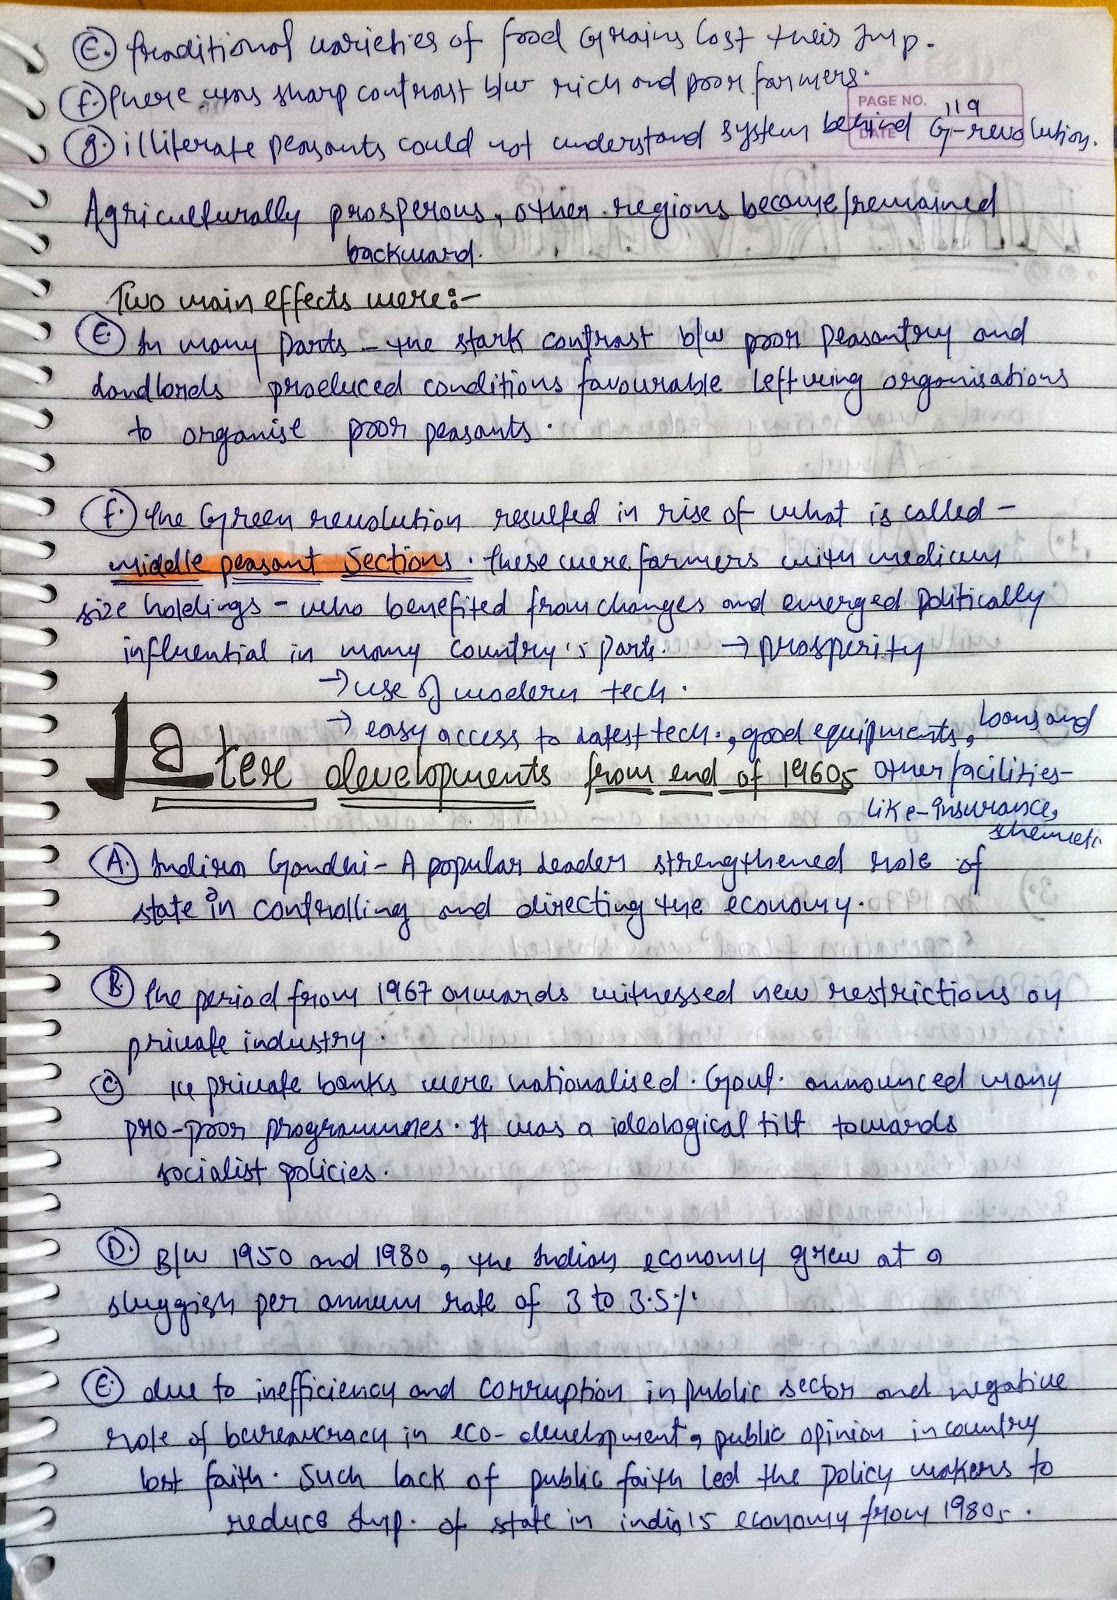 E. Traditional varieties of food Grains Lost their Imp.
F. There was sharp contrast b/w rich and poor farmers.
PAGE NO. 119
DATE
g. illiterate peasants could not understand system behind G-revolution.
Agriculturally prosperous, other regions become/remained
backward.
Two main effects were:-
E. In many Parts - the stark contrast b/w poor Peasantry and
Landlords produced conditions favourable leftwing organisations
to organise poor peasants.
F. the Green revolution resulted in rise of what is called -
middle peasant Sections. these were farmers with medium
size holdings - who benefited from changes and emerged politically
influential in many country's parts. → prosperity
→ use of modern tech.
→ easy access to Latest tech., good equipments, loans and
Later developments from end of 1960s other facilities-
like-insurance,
A. Indira Gandhi - A popular Leader strengthened role of
state in controlling and directing the economy.
B. the period from 1967 onwards witnessed new restrictions on
private industry.
C 14 private banks were nationalised. Govt. announced many
pro-poor programmes. It was a ideological tilt towards
socialist policies.
D. B/W 1950 and 1980, the Indian economy grew at a
sluggish per annum rate of 3 to 3.5%.
E. due to inefficiency and corruption in public sector and negative
role of bureaucracy in eco-development, public opinion in country
lost faith. Such lack of public faith led the policy makers to
reduce Imp. of state in india's economy from 1980s.